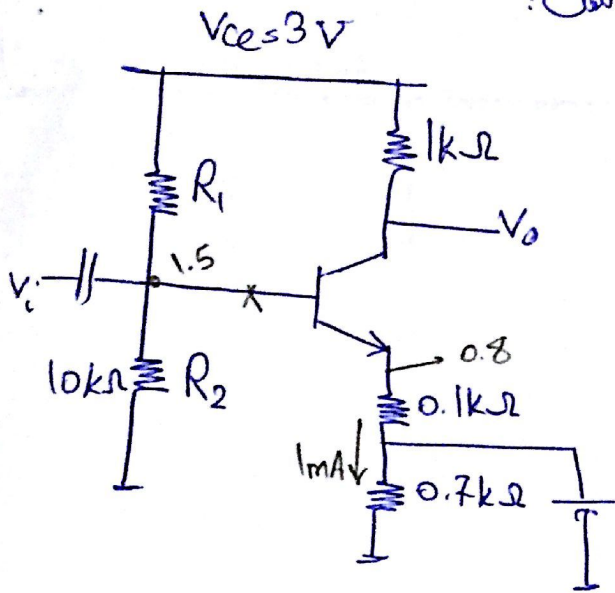 Vce=3V
1kΩ
R₁
V₀
1.5
Vᵢ
0.8
10kΩ R₂
0.1kΩ
1mA
0.7kΩ